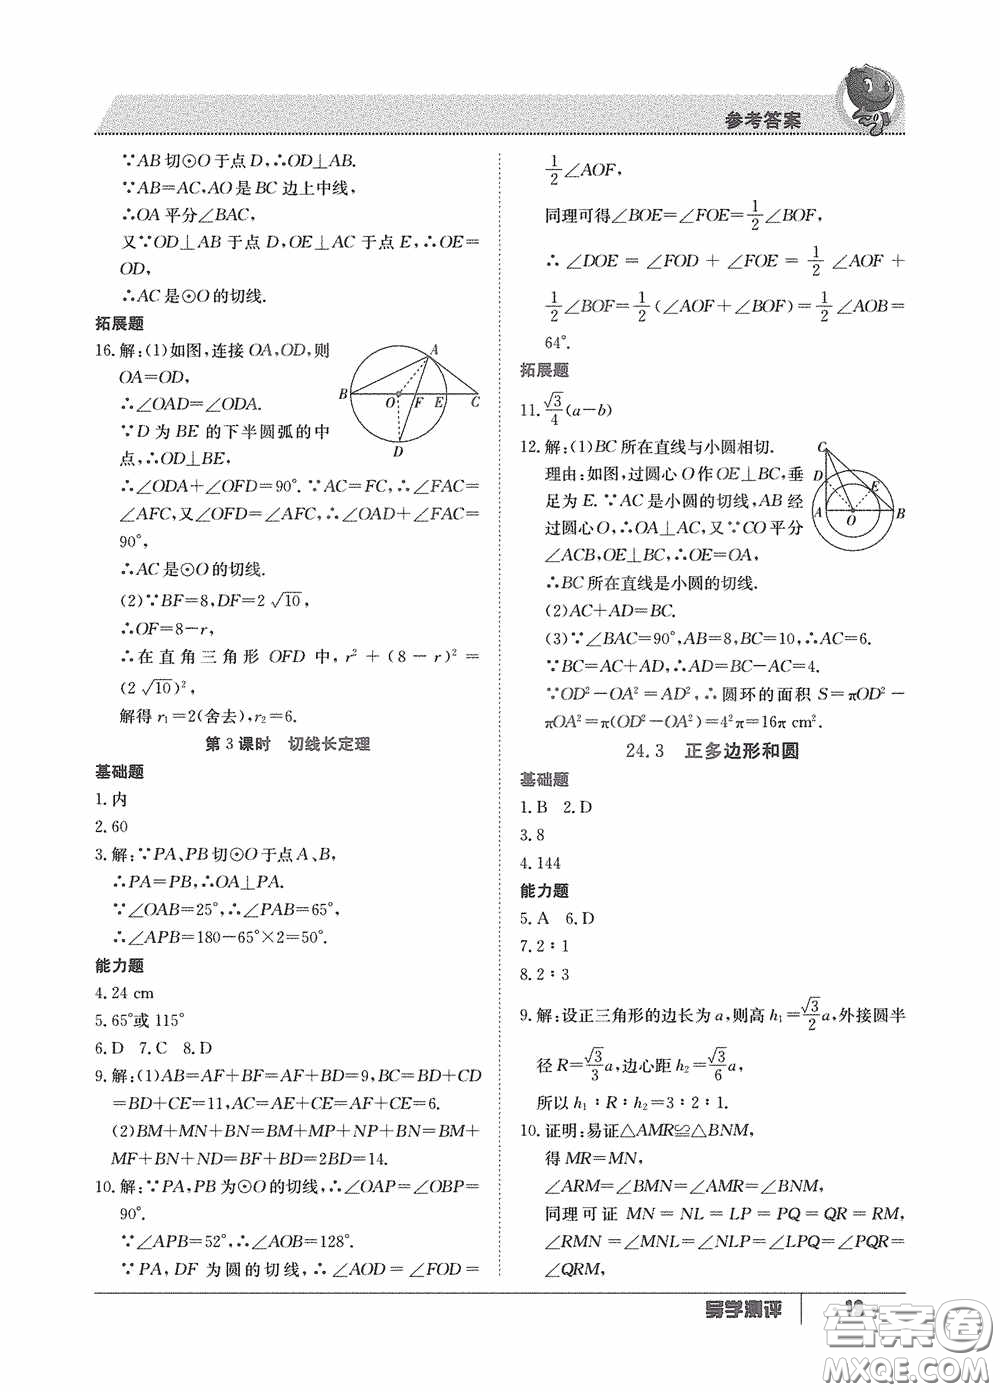 参考答案
∵AB切⊙O于点D,∴OD⊥AB.
∵AB=AC,AO是BC边上中线,
∴OA平分∠BAC,
又∵OD⊥AB于点D,OE⊥AC于点E,∴OE=
OD,
∴AC是⊙O的切线.
拓展题
16.解:(1)如图,连接OA,OD,则
OA=OD,
∴∠OAD=∠ODA.
∵D为BE的下半圆弧的中
点,∴OD⊥BE,
∴∠ODA+∠OFD=90°.∵AC=FC,∴∠FAC=
∠AFC,又∠OFD=∠AFC,∴∠OAD+∠FAC=
90°,
∴AC是⊙O的切线.
(2)∵BF=8,DF=2√10,
∴OF=8-r,
∴在直角三角形OFD中,r²+(8-r)²=
(2√10)²,
解得r₁=2(舍去),r₂=6.
A
B
O
F
E
C
D
第3课时 切线长定理
基础题
1.内
2.60
3.解:∵PA、PB切⊙O于点A、B,
∴PA=PB,∴OA⊥PA.
∵∠OAB=25°,∴∠PAB=65°,
∴∠APB=180-65°×2=50°.
能力题
4.24 cm
5.65°或115°
6.D 7.C 8.D
9.解:(1)AB=AF+BF=AF+BD=9,BC=BD+CD
=BD+CE=11,AC=AE+CE=AF+CE=6.
(2)BM+MN+BN=BM+MP+NP+BN=BM+
MF+BN+ND=BF+BD=2BD=14.
10.解:∵PA,PB为⊙O的切线,∴∠OAP=∠OBP=
90°.
∵∠APB=52°,∴∠AOB=128°.
∵PA,DF为圆的切线,∴∠AOD=∠FOD=
1/2∠AOF,
同理可得∠BOE=∠FOE=1/2∠BOF,
∴∠DOE=∠FOD+∠FOE=1/2∠AOF+
1/2∠BOF=1/2(∠AOF+∠BOF)=1/2∠AOB=
64°.
拓展题
11.√3/4(a-b)
12.解:(1)BC所在直线与小圆相切.
理由:如图,过圆心O作OE⊥BC,垂
足为E.∵AC是小圆的切线,AB经
过圆心O,∴OA⊥AC,又∵CO平分
∠ACB,OE⊥BC,∴OE=OA,
∴BC所在直线是小圆的切线.
(2)AC+AD=BC.
(3)∵∠BAC=90°,AB=8,BC=10,∴AC=6.
∵BC=AC+AD,∴AD=BC-AC=4.
∵OD²-OA²=AD²,∴圆环的面积S=πOD²-
πOA²=π(OD²-OA²)=4²π=16π cm².
C
D
E
A
O
B
24.3 正多边形和圆
基础题
1.B 2.D
3.8
4.144
能力题
5.A 6.D
7.2∶1
8.2∶3
9.解:设正三角形的边长为a,则高h₁=√3/2a,外接圆半
径R=√3/3a,边心距h₂=√3/6a,
所以h₁∶R∶h₂=3∶2∶1.
10.证明:易证△AMR≌△BNM,
得MR=MN,
∠ARM=∠BMN=∠AMR=∠BNM,
同理可证MN=NL=LP=PQ=QR=RM,
∠RMN=∠MNL=∠NLP=∠LPQ=∠PQR=
∠QRM,
导学测评
答案卷
MXQE.COM